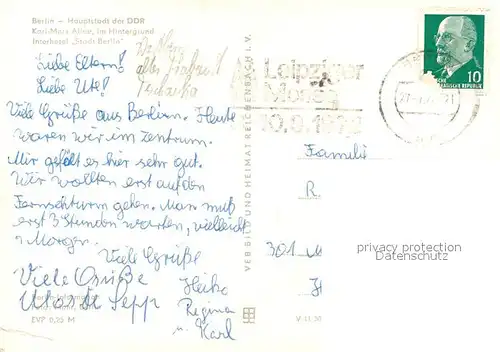 Berlin – Hauptstadt der DDR
Karl-Marx Allee, im Hintergrund
Interhotel „Stadt Berlin"
Liebe Eltern!
Liebe Ute!
Viele Grüße aus Berlin. Heute
waren wir im Zentrum.
Mir gefällt es hier sehr gut.
Wir wollten erst auf den
Fernsehturm gehen. Man muß
erst 3 Stunden warten, vielleicht
Morgen.
Viele Grüße
Heiko
Viele Grüße
Sepp
Regina
u. Karl
EVP 0,25 M
VEB BILD UND HEIMAT REICHENBACH I. V.
V 11 50
Leipziger
Messe
10.9.1972
10
Familie
R.
301 M
H
privacy protection
Datenschutz